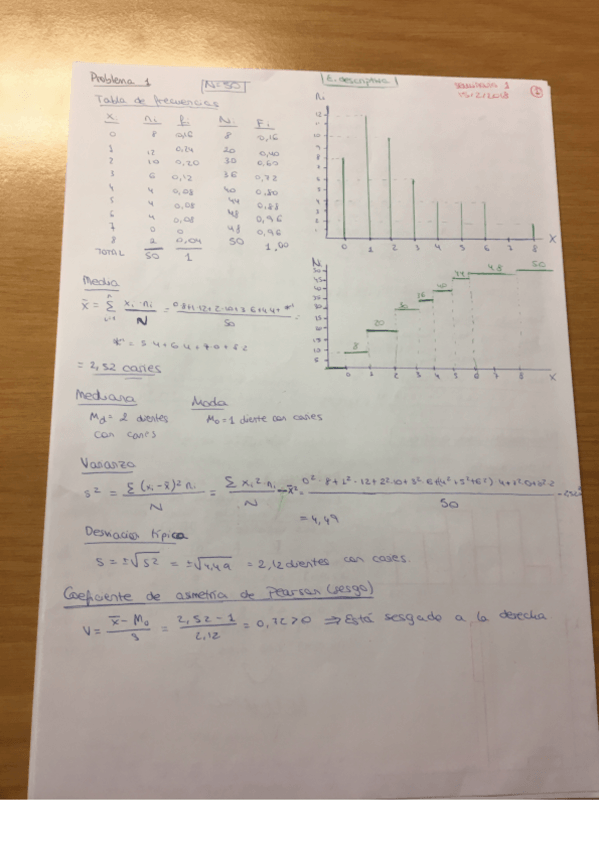 Problema 1
N=50
E. descriptiva
seminario 1
15/2/2018
1
Tabla de frecuencias
xi ni fi Ni Fi
0 8 0,16 8 0,16
1 12 0,24 20 0,40
2 10 0,20 30 0,60
3 6 0,12 36 0,72
4 4 0,08 40 0,80
5 4 0,08 44 0,88
6 4 0,08 48 0,96
7 0 0 48 0,96
8 2 0,04 50 1,00
TOTAL 50 1
ni
0 1 2 3 4 5 6 7 8 X
Ni
8 20 30 36 40 44 48 50
0 1 2 3 4 5 6 7 8 X
Media
x̄ = Σ xi · ni / N = 0·8+1·12+2·10+3·6+4·4+ * / 50 =
* = 5·4+6·4+7·0+8·2
= 2,52 caries
Mediana Moda
Md = 2 dientes Mo = 1 diente con caries
con caries
Varianza
s² = Σ (xi - x̄)² ni / N = Σ xi² ni / N - x̄² = 0²·8+1²·12+2²·10+3²·6+(4²+5²+6²)·4+7²·0+8²·2 / 50 - 2,52²
= 4,49
Desviación típica
S = ±√s² = ±√4,49 = 2,12 dientes con caries.
Coeficiente de asimetría de Pearson (sesgo)
V = x̄ - Mo / s = 2,52 - 1 / 2,12 = 0,72 > 0 ⇒ Está sesgado a la derecha